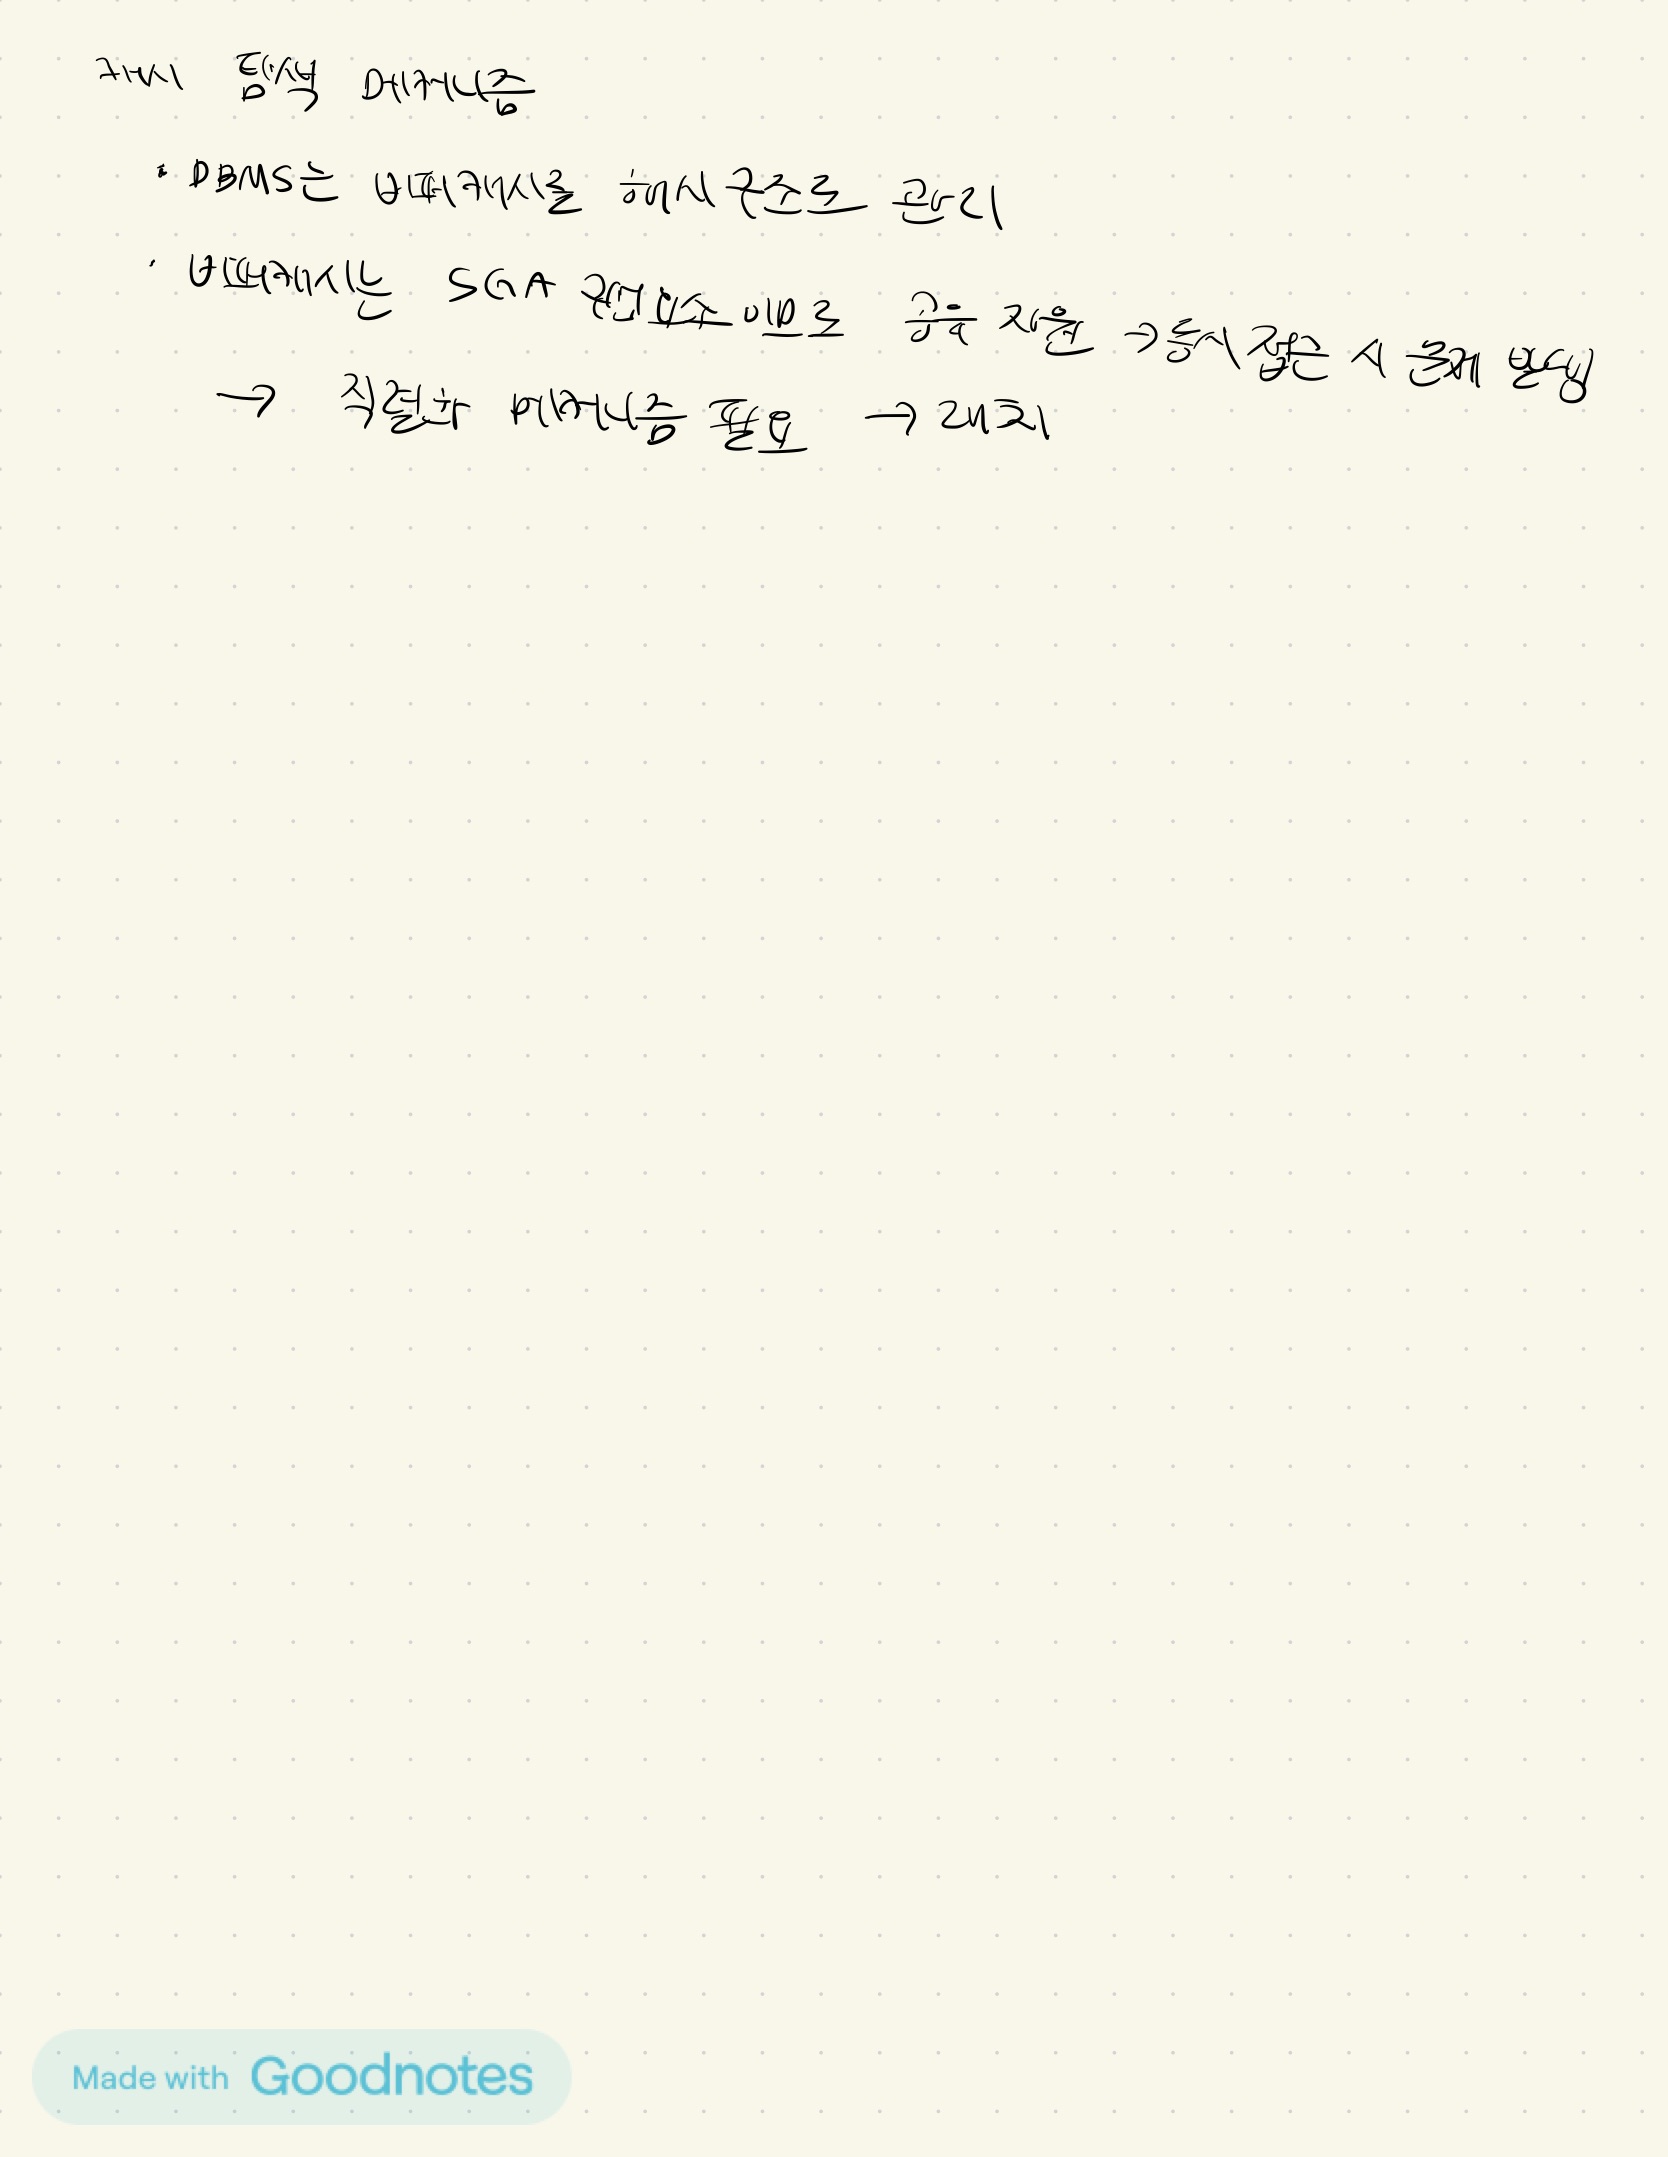 캐시 탐색 메커니즘
· DBMS는 버퍼캐시를 해시구조로 관리
· 버퍼캐시는 SGA 구성요소이므로 공유 자원 → 동시 접근 시 문제 발생
→ 직렬화 메커니즘 필요 → 래치
Made with Goodnotes